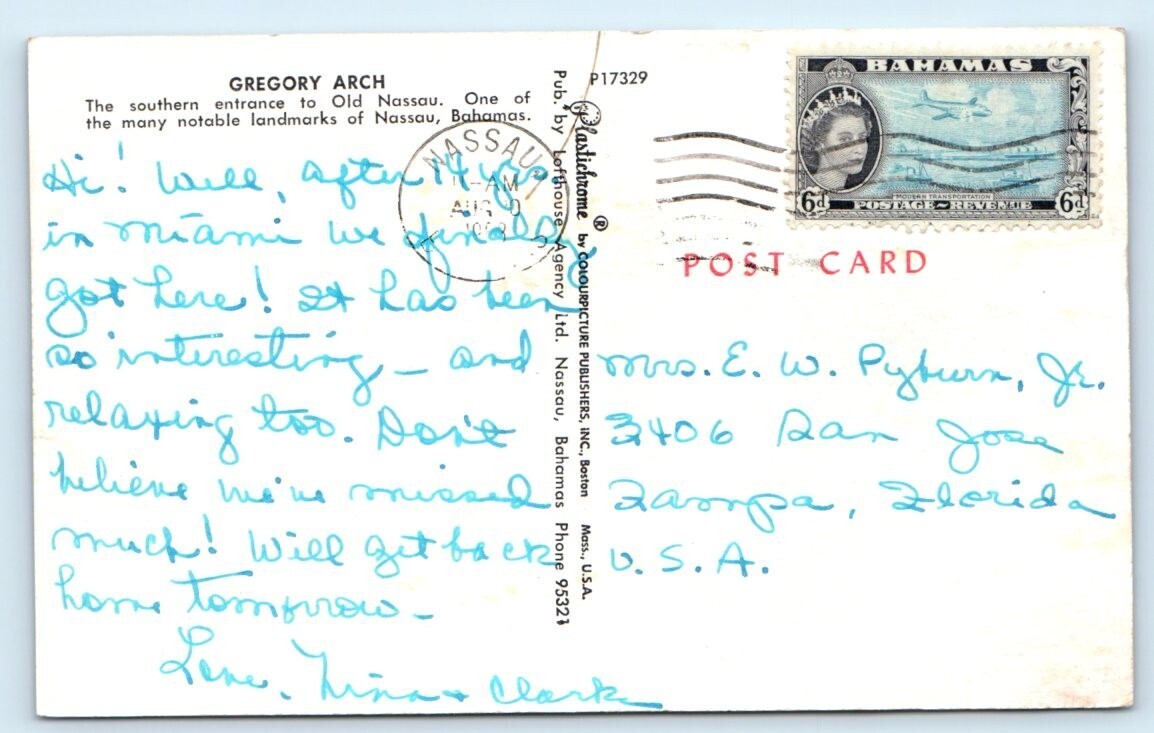 GREGORY ARCH
The southern entrance to Old Nassau. One of
the many notable landmarks of Nassau, Bahamas.
Hi! Well, after 14 yrs
in Miami we finally
got here! It has been
so interesting – and
relaxing too. Don't
believe we've missed
much! Will get back
home tomorrow –
Love, Nina + Clark
Pub. by Lofthouse Agency Ltd. Nassau, Bahamas Phone 95321
Plastichrome ® by COLOURPICTURE PUBLISHERS, INC., Boston Mass., U.S.A.
P17329
NASSAU
AM
AUG
BAHAMAS
MODERN TRANSPORTATION
6d POSTAGE~REVENUE 6d
POST CARD
Mrs. E. W. Pyburn, Jr.
3406 San Jose
Tampa, Florida
U.S.A.